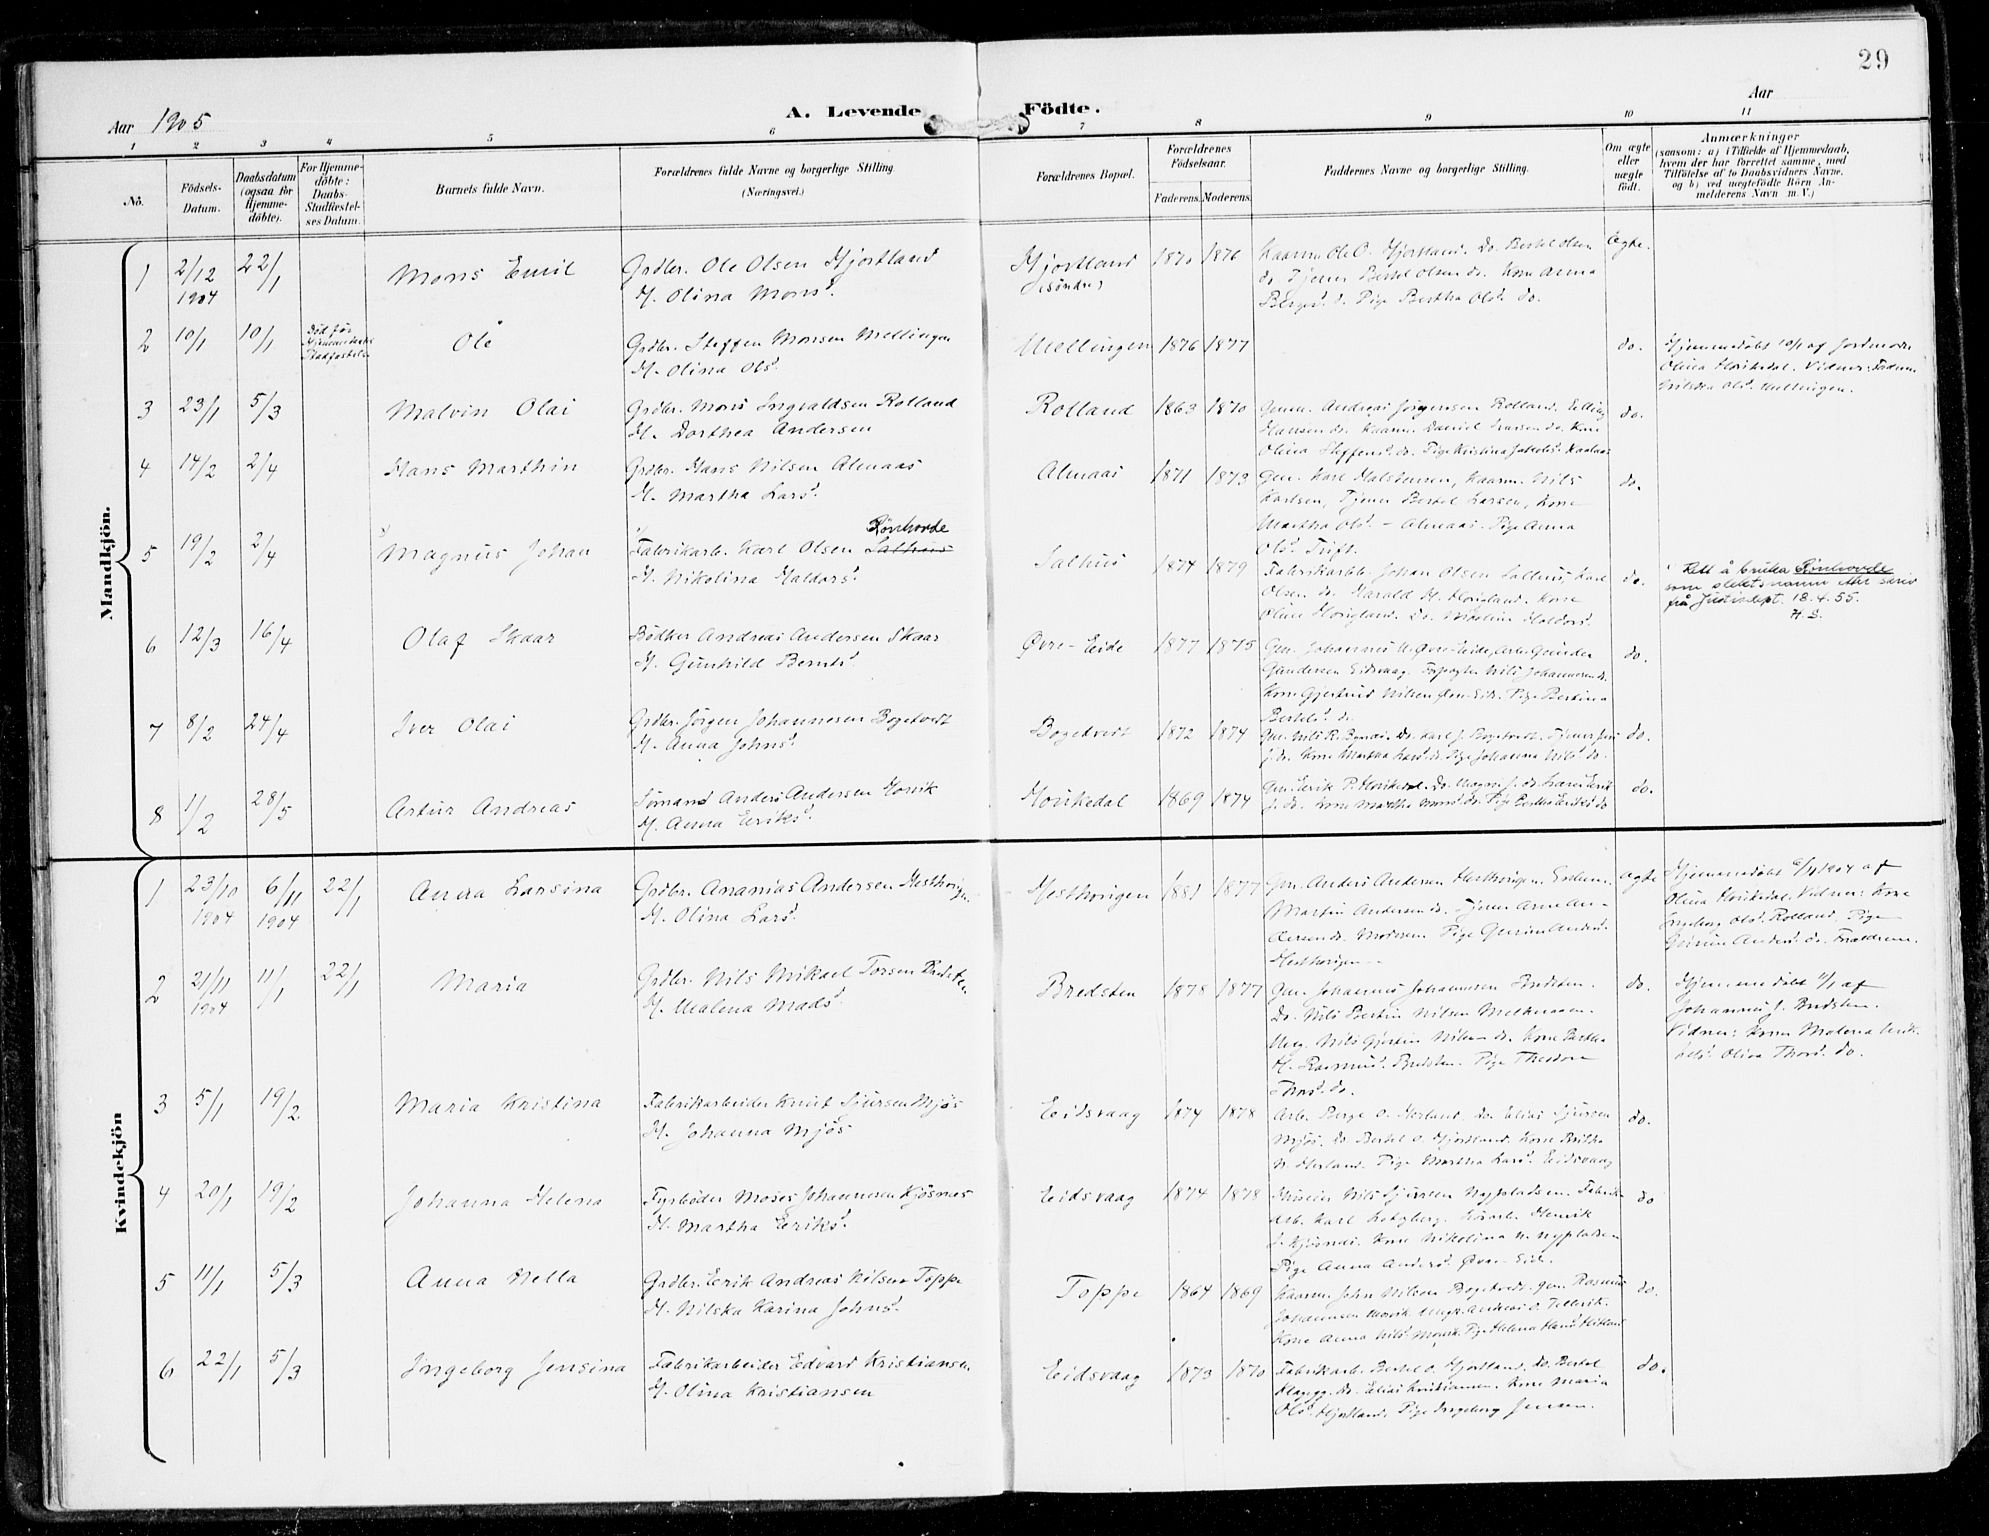 29
Aar 1905
A. Levende Födte.
Aar
1 2 3 4 5 6 7 8 9 10 11
No.
Födsels-Datum.
Daabsdatum (ogsaa for Hjemme-döbte).
For Hjemme-döbte: Daabs-Stadfæstel-ses Datum.
Barnets fulde Navn.
Forældrenes fulde Navne og borgerlige Stilling (Næringsvei.)
Forældrenes Bopæl.
Forældrenes Födselsaar.
Faderens. Moderens.
Faddernes Navne og borgerlige Stilling.
Om ægte eller uægte födt.
Anmærkninger
(saasom: a) i Tilfælde af Hjemmedaab, hvem der har forrettet samme, med Tilföielse af to Daabsvidners Navne, og b) ved uægtefödte Börn An-melderens Navn m. V.)
Mandkjön.
1 2/12 1904 22/1 Mons Emil
Grdbr. Ole Olsen Hjortland
H. Olina Monsd.
Hjortland (Søndre) 1870 1876
Kaarm. Ole O. Hjortland. Do. Bertel Olsen
do. Tjener Bertel Olsen do. Kone Anna
Bergesd. do. Pige Bertha Olsd. do.
ægte.
2 10/1 10/1 Død før Hjemmedaabs Stadfæstelse Ole
Grdbr. Steffen Monsen Mellingen
H. Olina Olsd.
Mellingen 1876 1877
do.
Hjemmedøbt 10/1 af Jordmoder
Olina Hovikedal. Vidner: Faderen
Olsd. Mellingen.
3 23/1 5/3 Malvin Olai
Grdbr. Mons Ingvaldsen Rolland
H. Dorthea Andersen
Rolland 1863 1870
Grm. Andreas Jørgensen Rolland. Elling
Hansen do. Kaarm. Daniel Larsen do. Kone
Olina Steffensd. do. Pige Kristina
do.
4 14/2 2/4 Hans Marthin
Grdbr. Hans Nilsen Almaas
H. Martha Larsd.
Almaas 1871 1873
Grm. Karl Halstensen, Kaarm. Nils
Karlsen, Tjener Bertel Larsen, Kone
Martha Olsd. – Almaas. Pige Anna
Olsd. Tuft.
do.
5 19/2 2/4 Magnus Johan
Rønhovde
Fabrikarb. Karl Olsen Salhus
H. Nikolina Haldorsd.
Salhus 1874 1879
Fabrikarb. Johan Olsen Salhus, Karl
Olsen do. Harald H. Hougland. Kone
Oline Hougland. Do. Nikoline Haldorsd.
do.
Rett å bruka Rønhovde
som slektsnamn etter skriv
frå Justisdept. 18.4.55.
H.S.
6 12/3 16/4 Olaf Skaar
Bødker Andreas Andersen Skaar
H. Gunhild Berntsd.
Øvre-Eide 1877 1875
Grm. Johannes N. Øvre-Eide, Arb. Gunder
Gundersen Eidsvaag. Forpagter Nils Johannesen do.
Kone Gjertrud Nilsen Øvre-Eide. Pige Bertina
Bertelsd. do.
do.
7 8/2 24/4 Iver Olai
Grdbr. Jørgen Johannesen Bogetveit
H. Anna Johnsd.
Bogetveit 1872 1874
Kone Martha Larsd. do. Pige Johanna Nilsd. do.
do.
8 1/2 28/5 Artur Andreas
Sømand Anders Andersen Hovik
H. Anna Eriksd.
Hovikedal 1869 1874
Grm. Erik P. Hovikedal. Do. Mons J. do.
Kone Martha Monsd. do. Pige Bertha Eriksd. do.
do.
Kvindekjön
1 23/10 1904 6/11 1904 22/1 Anna Larsina
Grdbr. Ananias Andersen Hesthovigen
H. Olina Larsd.
Hesthovigen 1881 1877
Grm. Anders Andersen Hesthovigen.
Martin Andersen do. Tjener Arne An-
dersen do. Moderen. Pige Gurine Andersd.
Hesthovigen –
ægte
Hjemmedøbt 6/11 1904 af
Olina Hovikedal. Vidner: Kone
Ingeborg Olsd. Rolland, Pige
Gurine Andersd. do. Forældrene.
2 21/11 1904 11/1 22/1 Maria
Grdbr. Nils Mikael Torsen Bredsten
H. Malena Madsd.
Bredsten 1878 1877
Grm. Johannes Johannesen Bredsten.
Do. Nils Bertin Nilsen
Ung. Nils Gjertin Nilsen do. Kone Bertha
H. Rasmusd. Bredsten. Pige Theodora
Thorsd. do.
do.
Hjemmedøbt 11/1 af
Johannes J. Bredsten.
Vidner: Kone Malena Mik-
kelsd. Oliva Thorsd. do.
3 5/1 19/2 Maria Kristina
Fabrikarbeider Knut Sjursen Mjøs
H. Johanna Mjøs
Eidsvaag 1874 1878
Arb. Berge O. Herland, do. Elias Sjursen
Mjøs. Do. Bertel O. Hjortland. Kone Britha
N. Herland. Pige Martha Larsd. Eidsvaag
do.
4 20/1 19/2 Johanna Helena
Fyrbøder Moses Johannesen Kjøsnes
H. Martha Eriksd.
Eidsvaag 1874 1878
Nils Sjursen Nypladsen. Fabrik-
arb. Karl Henrik
J. Kjøsnes. Kone Nikolina N. Nypladsen
Pige Anna Andersd. Øvre-Eide.
do
5 11/1 5/3 Anna Hella
Grdbr. Erik Andreas Nilsen Toppe
H. Nilska Karina Johnsd.
Toppe 1864 1869
Kaarm. John Nilsen Bogetveit. Grm. Rasmus
Johannesen Hovik. Ungk. Andreas O. Tellevik.
Kone Anna Nilsd. Hovik. Pige Helena
do.
6 22/1 5/3 Ingeborg Jensina
Fabrikarbeider Edvard Kristiansen
H. Olina Kristiansen
Eidsvaag 1873 1870
Fabrikarb. Bertel O. Hjortland. do. Bertel
do. Elias Kristiansen. Kone Maria
Olsd. Hjortland. Pige Ingeborg Jensen.
do.